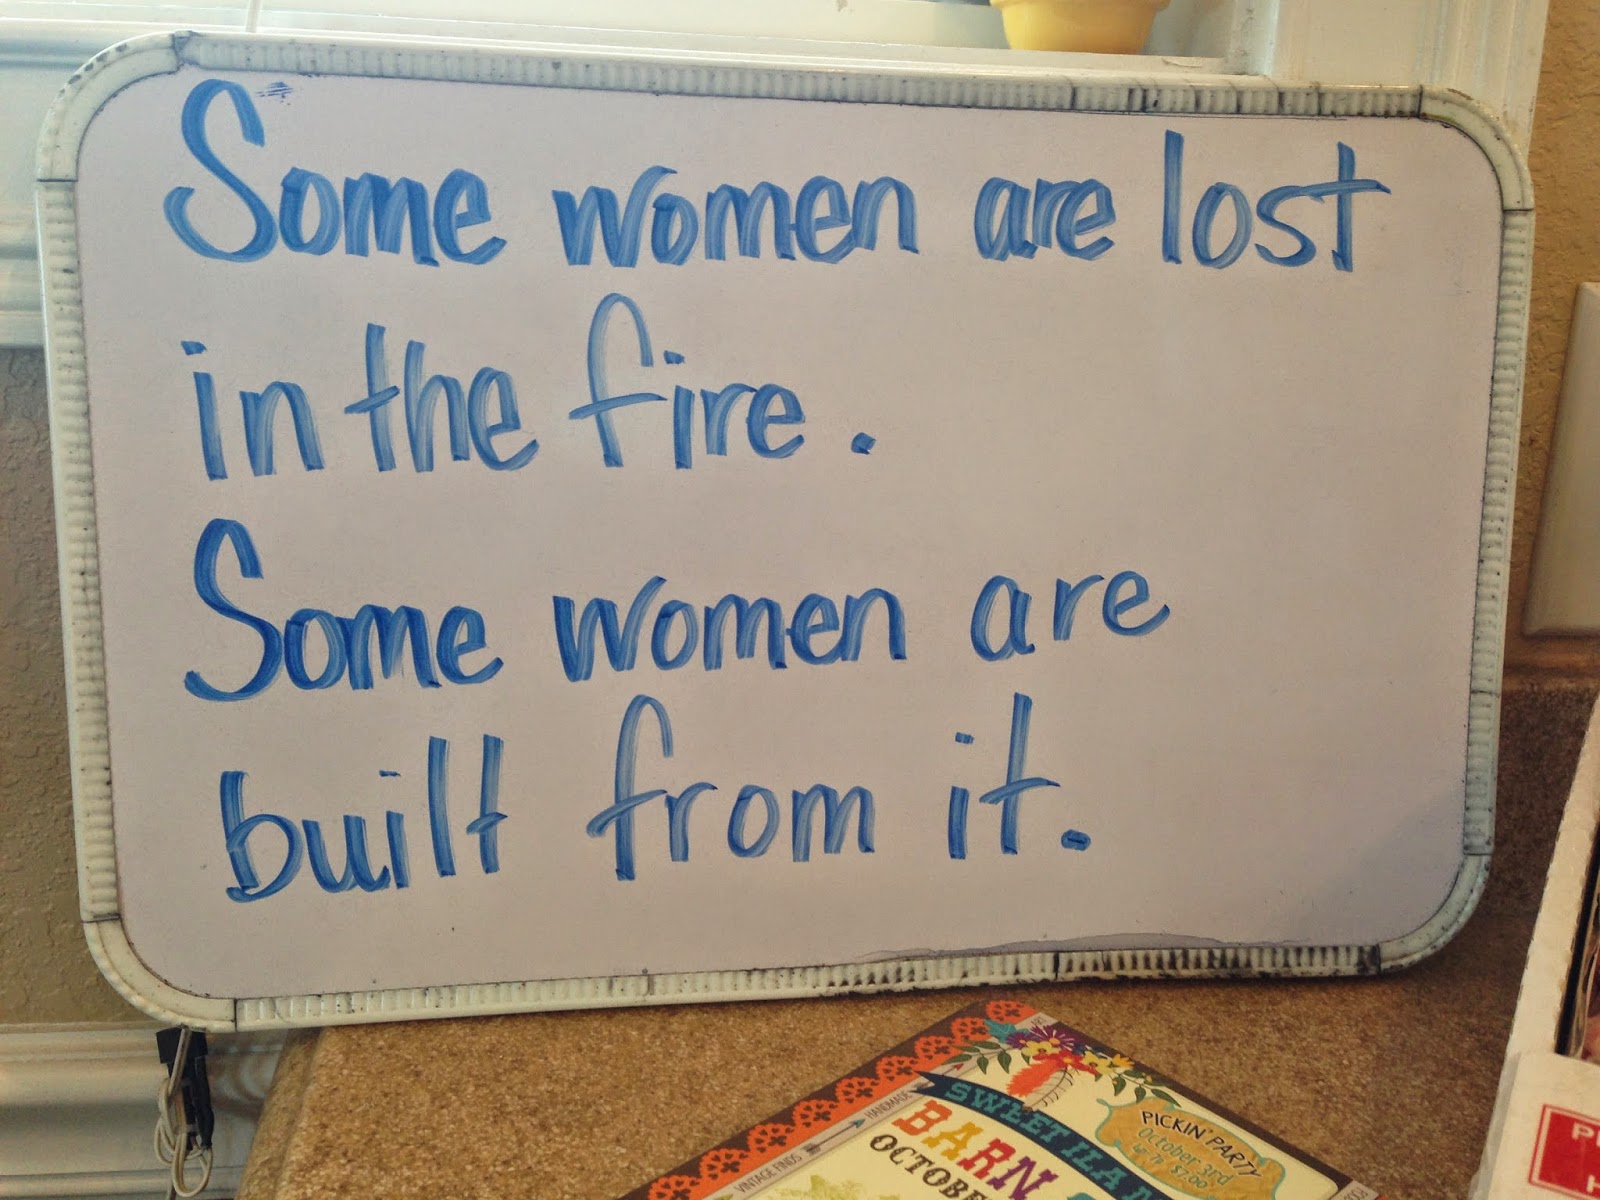 Some women are lost
in the fire.
Some women are
built from it.
HANDMADE
VINTAGE FINDS
SWEET ILA
BARN
OCTOBE
PICKIN' PARTY
October 3rd
$7.00